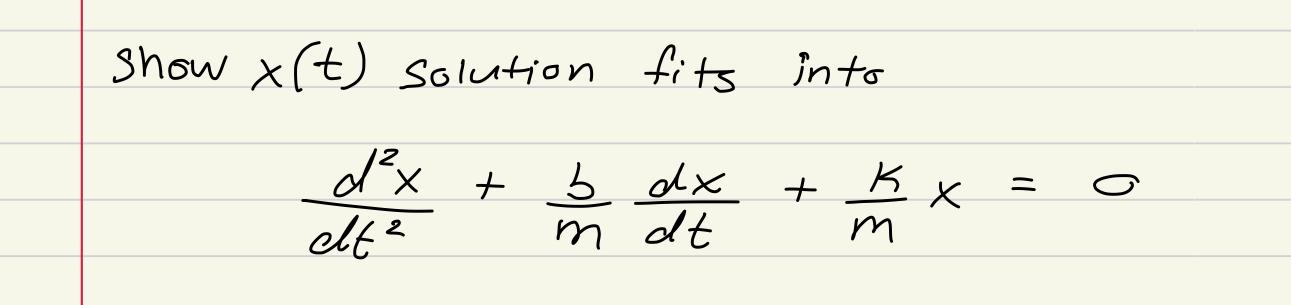 show x(t) solution fits into
d²x/dt² + b/m dx/dt + k/m x = 0